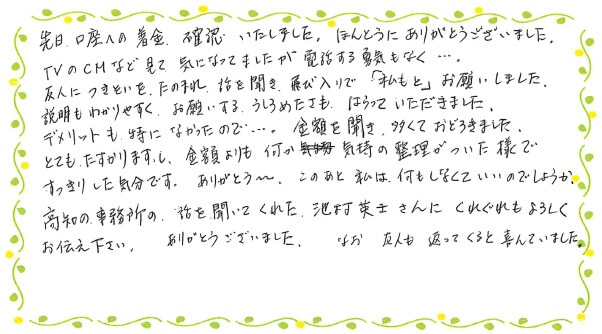 先日、口座への着金、確認いたしました。ほんとうにありがとうございました。
TVのCMなど見て気になってましたが電話する勇気もなく…。
友人につきそいをたのまれ、話を聞き、飛び入りで「私も」とお願いしました。
説明もわかりやすく、お願いする、うしろめたさも、はらっていただきました。
デメリットも特になかったので…。金額を聞き、多くておどろきました。
とても、たすかりますし、金額よりも何か気持の整理がついた様で
すっきりした気分です。ありがとう〜。このあと私は、何もしなくていいのでしょうか、
高知の、事務所の、話を聞いてくれた、池村英士さんにくれぐれもよろしく
お伝え下さい。ありがとうございました。なお友人も返ってくると喜んでいました。